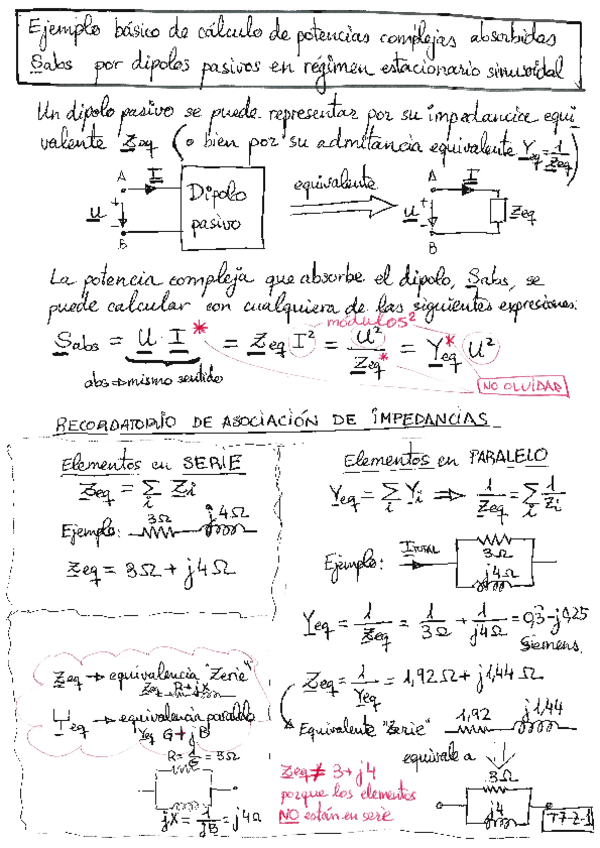 Ejemplo básico de cálculo de potencias complejas absorbidas
Sabs por dipolos pasivos en régimen estacionario sinusoidal
Un dipolo pasivo se puede representar por su impedancia equi
valente Zeq (o bien por su admitancia equivalente Yeq = 1/Zeq)
A I Dipolo pasivo B + U -
equivalente
A I + U - B Zeq
La potencia compleja que absorbe el dipolo, Sabs, se
puede calcular con cualquiera de las siguientes expresiones:
módulos²
Sabs = U · I* = Zeq I² = U²/Zeq* = Yeq* U²
abs ⇒ mismo sentido
NO OLVIDAR
RECORDATORIO DE ASOCIACIÓN DE IMPEDANCIAS
Elementos en SERIE
Zeq = Σi Zi
Ejemplo: 3Ω j4Ω
Zeq = 3Ω + j4Ω
Elementos en PARALELO
Yeq = Σi Yi ⇒ 1/Zeq = Σi 1/Zi
Ejemplo: ITOTAL 3Ω j4Ω
Yeq = 1/Zeq = 1/3Ω + 1/j4Ω = 0,3-j0,25
Siemens
Zeq = 1/Yeq = 1,92Ω + j1,44Ω
Equivalente "Zerie" 1,92 j1,44
equivale a
3Ω
j4
Zeq → equivalencia "Zerie"
Zeq R+jX
Yeq → equivalencia paralelo
Yeq G+jB
R = 1/G = 3Ω
jX = 1/jB = j4Ω
Zeq ≠ 3+j4
porque los elementos
NO están en serie
T7-Z-1